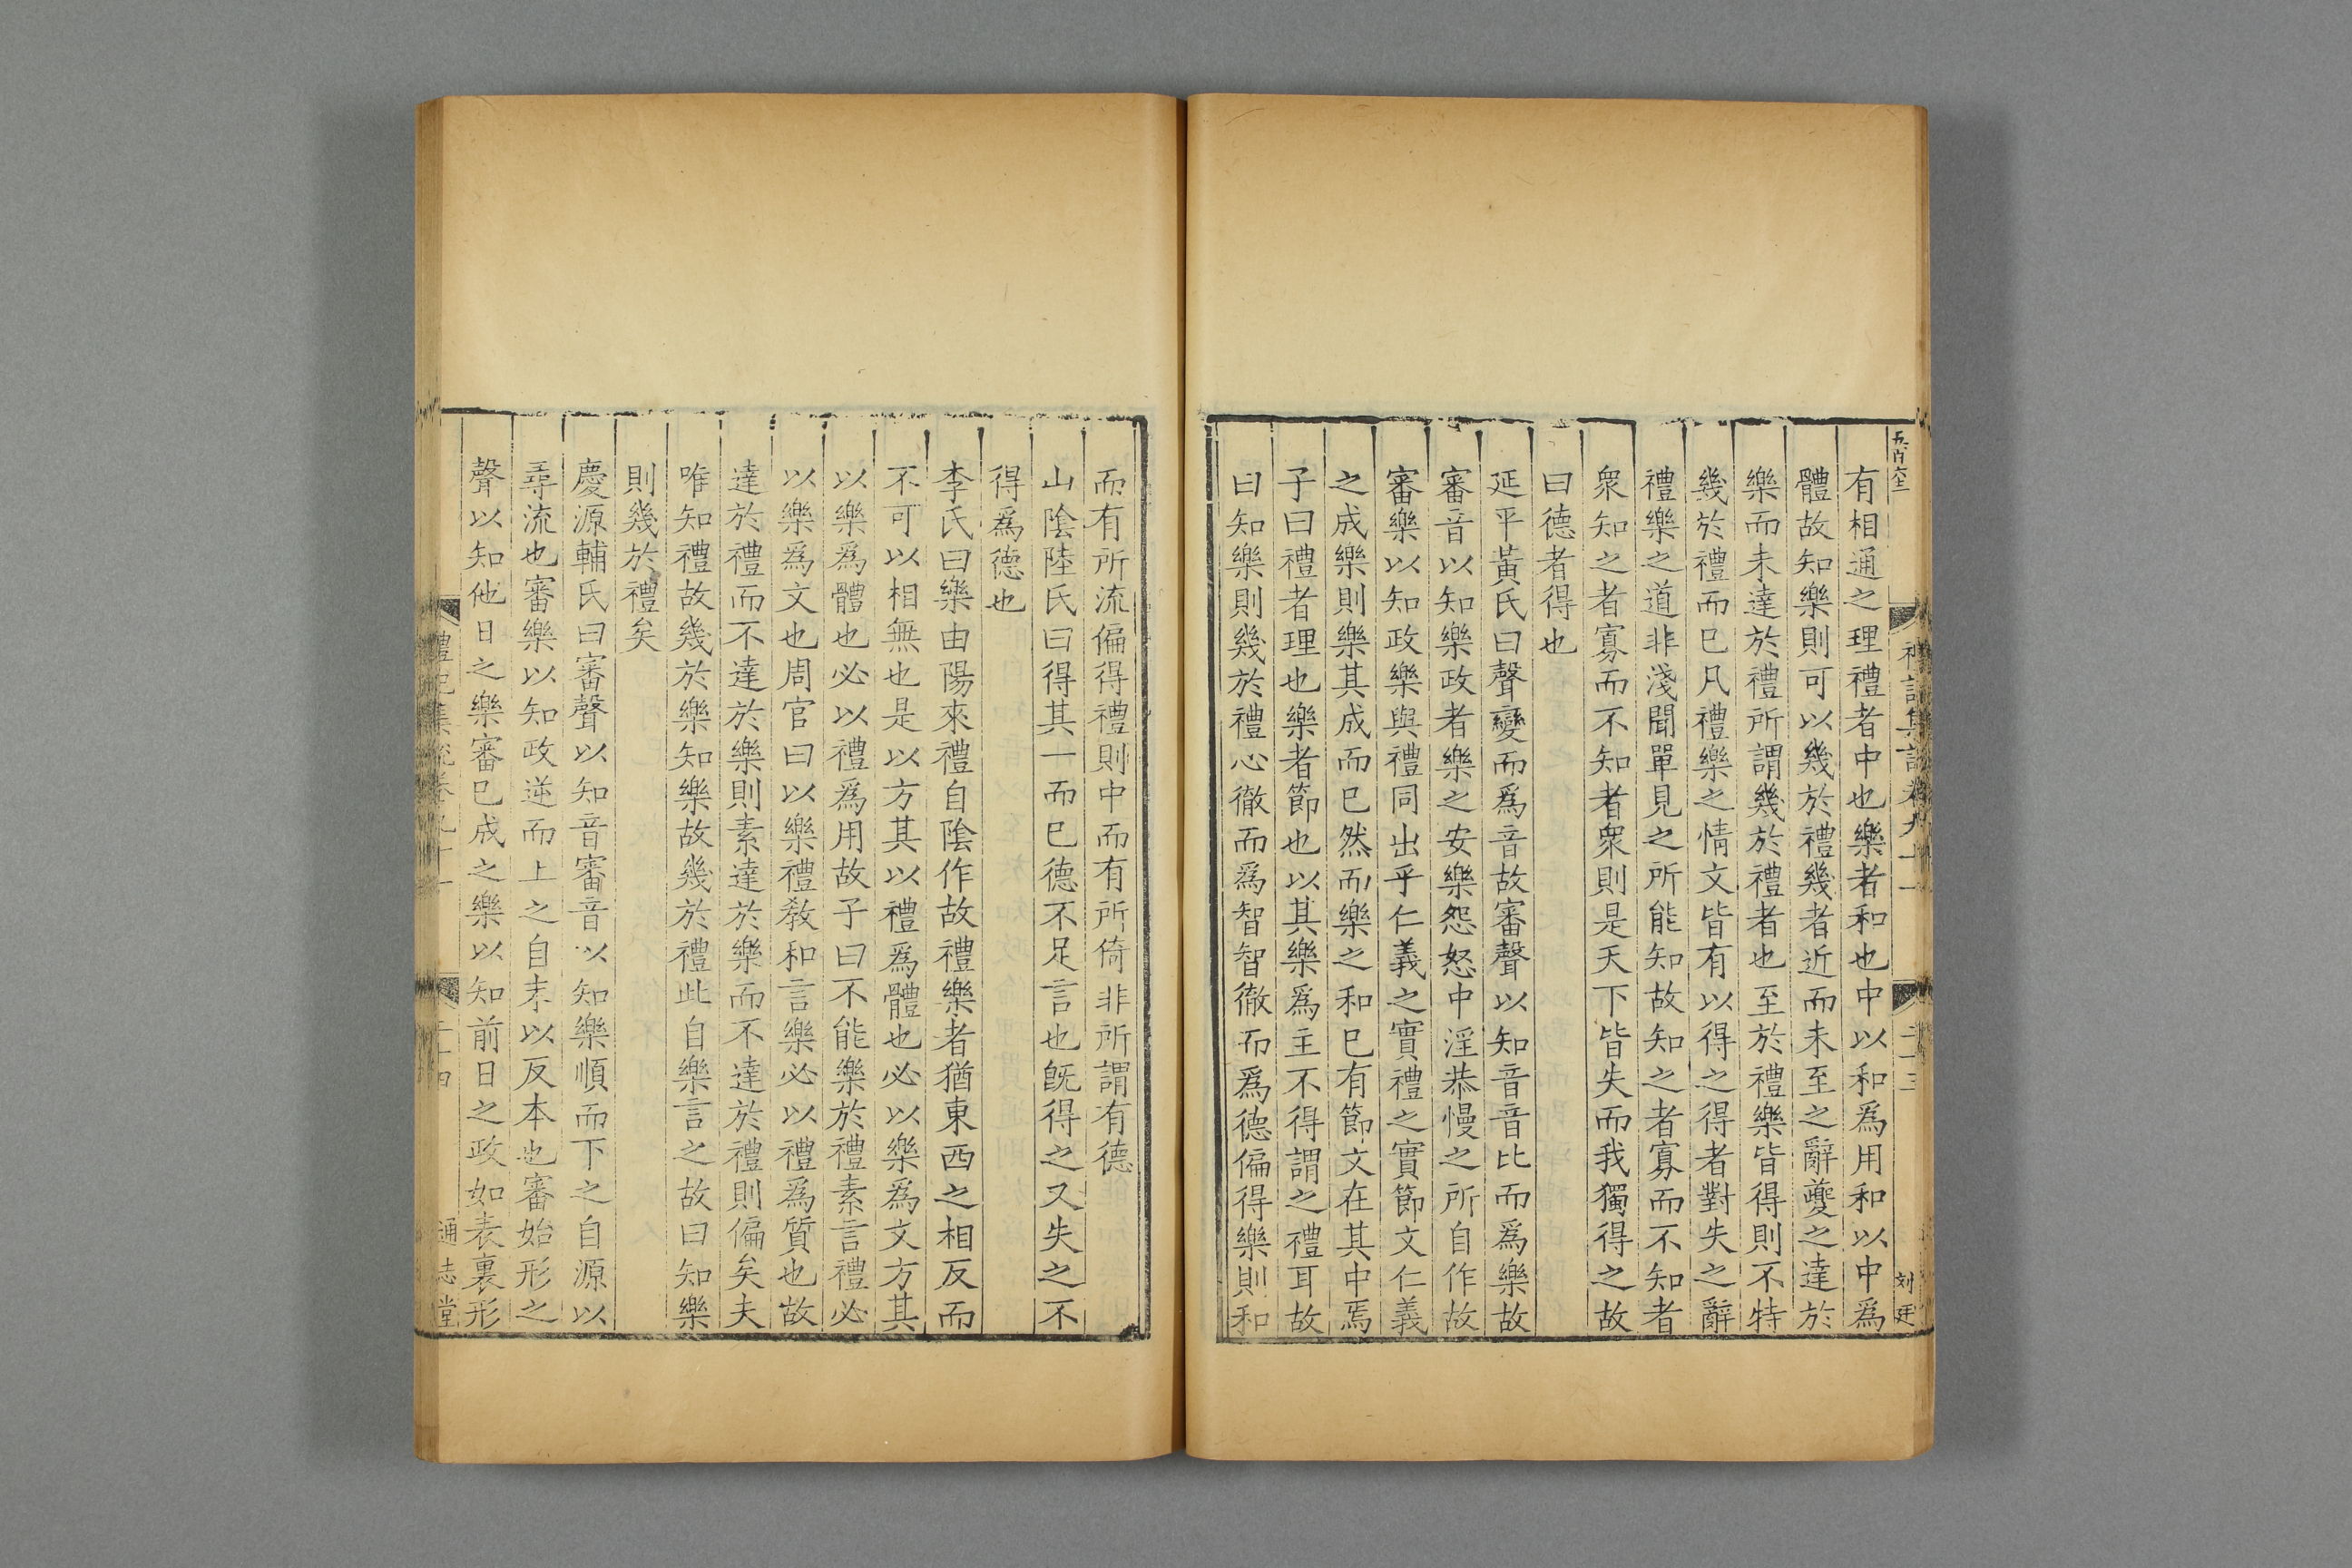 有相通之理禮者中也樂者和也中以和爲用和以中爲
體故知樂則可以幾於禮幾者近而未至之辭夔之達於
樂而未達於禮所謂幾於禮者也至於禮樂皆得則不特
幾於禮而已凡禮樂之情文皆有以得之得者對失之辭
禮樂之道非淺聞單見之所能知故知之者寡而不知者
衆知之者寡而不知者衆則是天下皆失而我獨得之故
曰德者得也
延平黃氏曰聲變而爲音故審聲以知音音比而爲樂故
審音以知樂政者樂之安樂怨怒中淫恭慢之所自作故
審樂以知政樂與禮同出乎仁義之實禮之實節文仁義
之成樂則樂其成而已然而樂之和已有節文在其中焉
子曰禮者理也樂者節也以其樂爲主不得謂之禮耳故
曰知樂則幾於禮心徹而爲智智徹而爲德偏得樂則和
禮記集說卷九十一
二十三
刘廷
而有所流偏得禮則中而有所倚非所謂有德
山陰陸氏曰得其一而已德不足言也旣得之又失之不
得爲德也
李氏曰樂由陽來禮自陰作故禮樂者猶東西之相反而
不可以相無也是以方其以禮爲體也必以樂爲文方其
以樂爲體也必以禮爲用故子曰不能樂於禮素言禮必
以樂爲文也周官曰以樂禮敎和言樂必以禮爲質也故
達於禮而不達於樂則素達於樂而不達於禮則偏矣夫
唯知禮故幾於樂知樂故幾於禮此自樂言之故曰知樂
則幾於禮矣
慶源輔氏曰審聲以知音審音以知樂順而下之自源以
尋流也審樂以知政逆而上之自末以反本也審始形之
聲以知他日之樂審已成之樂以知前日之政如表裏形
禮記集說卷九十一
二十四
通志堂